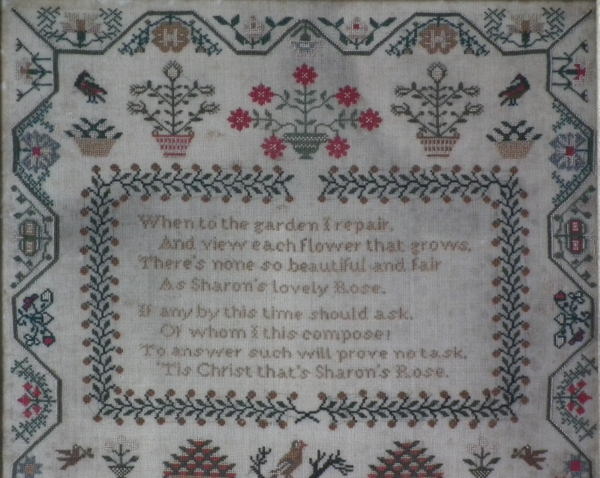 When to the garden I repair,
And view each flower that grows,
There's none so beautiful and fair
As Sharon's lovely Rose.
If any by this time should ask,
Of whom I this compose;
To answer such will prove no task,
'Tis Christ that's Sharon's Rose.